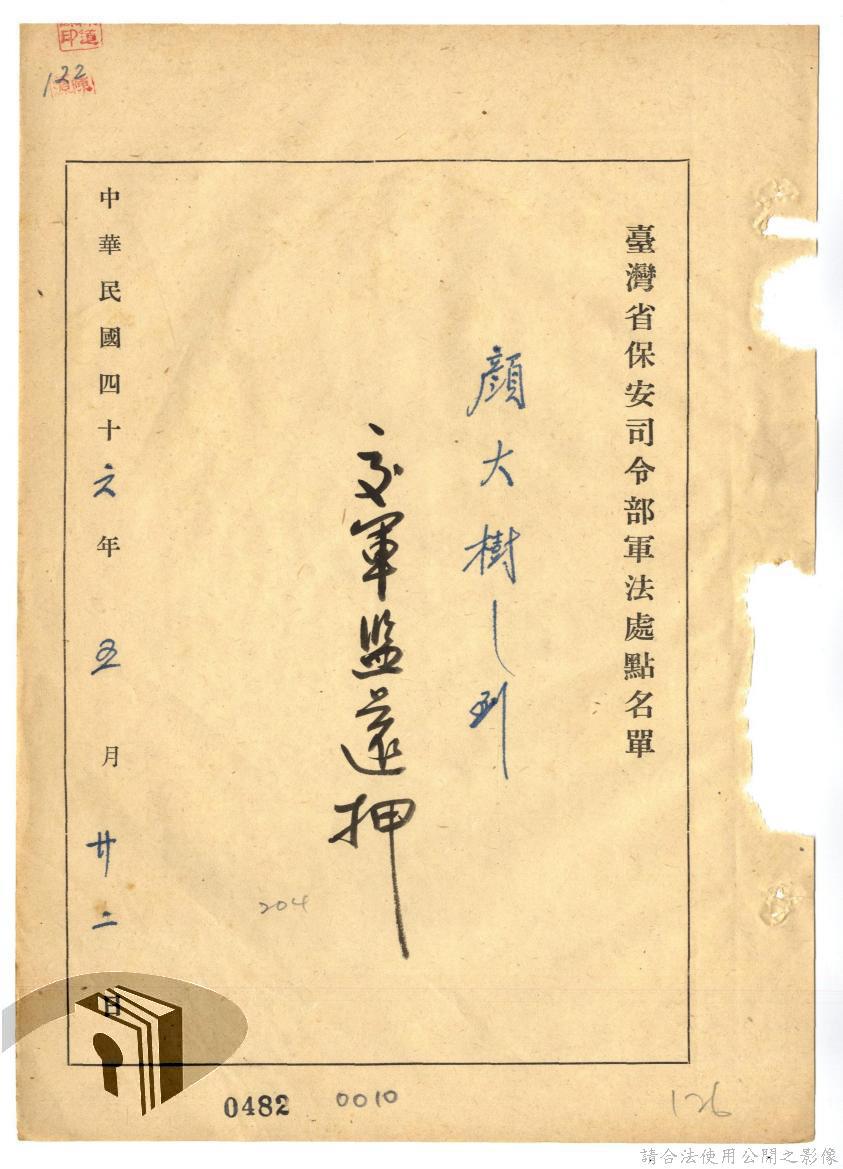 臺灣省保安司令部軍法處點名單
顏大樹 到
交軍監還押
中華民國四十六年五月廿二日
122
204
0482
0010
126
請合法使用公開之影像